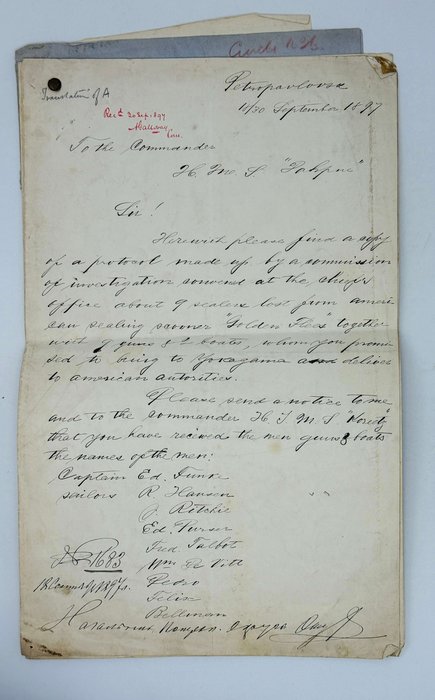 Translation of A
Petropavlovsk
September 1897
Rec'd 30 Sep. 1897
To the Commander
H. M. S.
Sir!
Herewith please find a copy
of a protocol made up by a commission
of investigation convened at the chiefs
office about 9 sealers lost from ameri
can sealing scooner "Golden Fleec" together
with 9 guns & 2 boats, whom you promi
sed to bring to Yokogama and deliver
to american autorities.
Please send a notice to me
and to the commander H I M S
that you have recieved the men guns & boats
the names of the men:
Captain Ed. Funke
sailors R. Hansen
J. Ritchie
Ed. Purser
Fred. Talbot
Wm De Vitt
Pedro
Felix
Bellman
1683